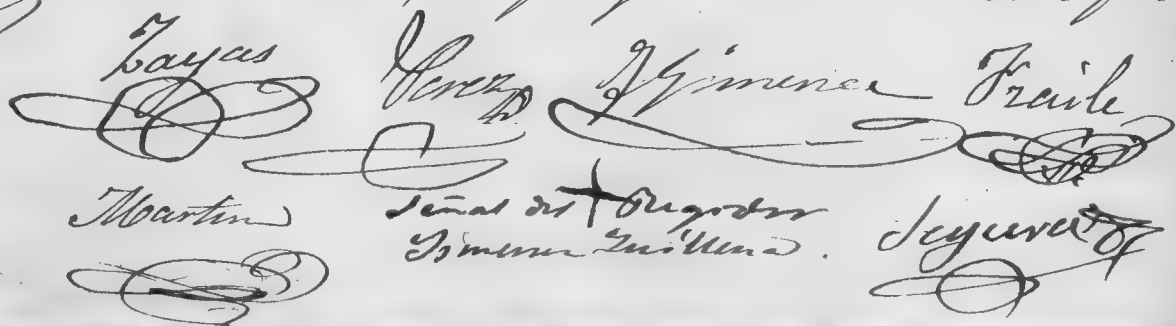 Zayas Perez J Gimenez Fraile
Martin Señal del + Regidor Segura
Gimenez Guillena.